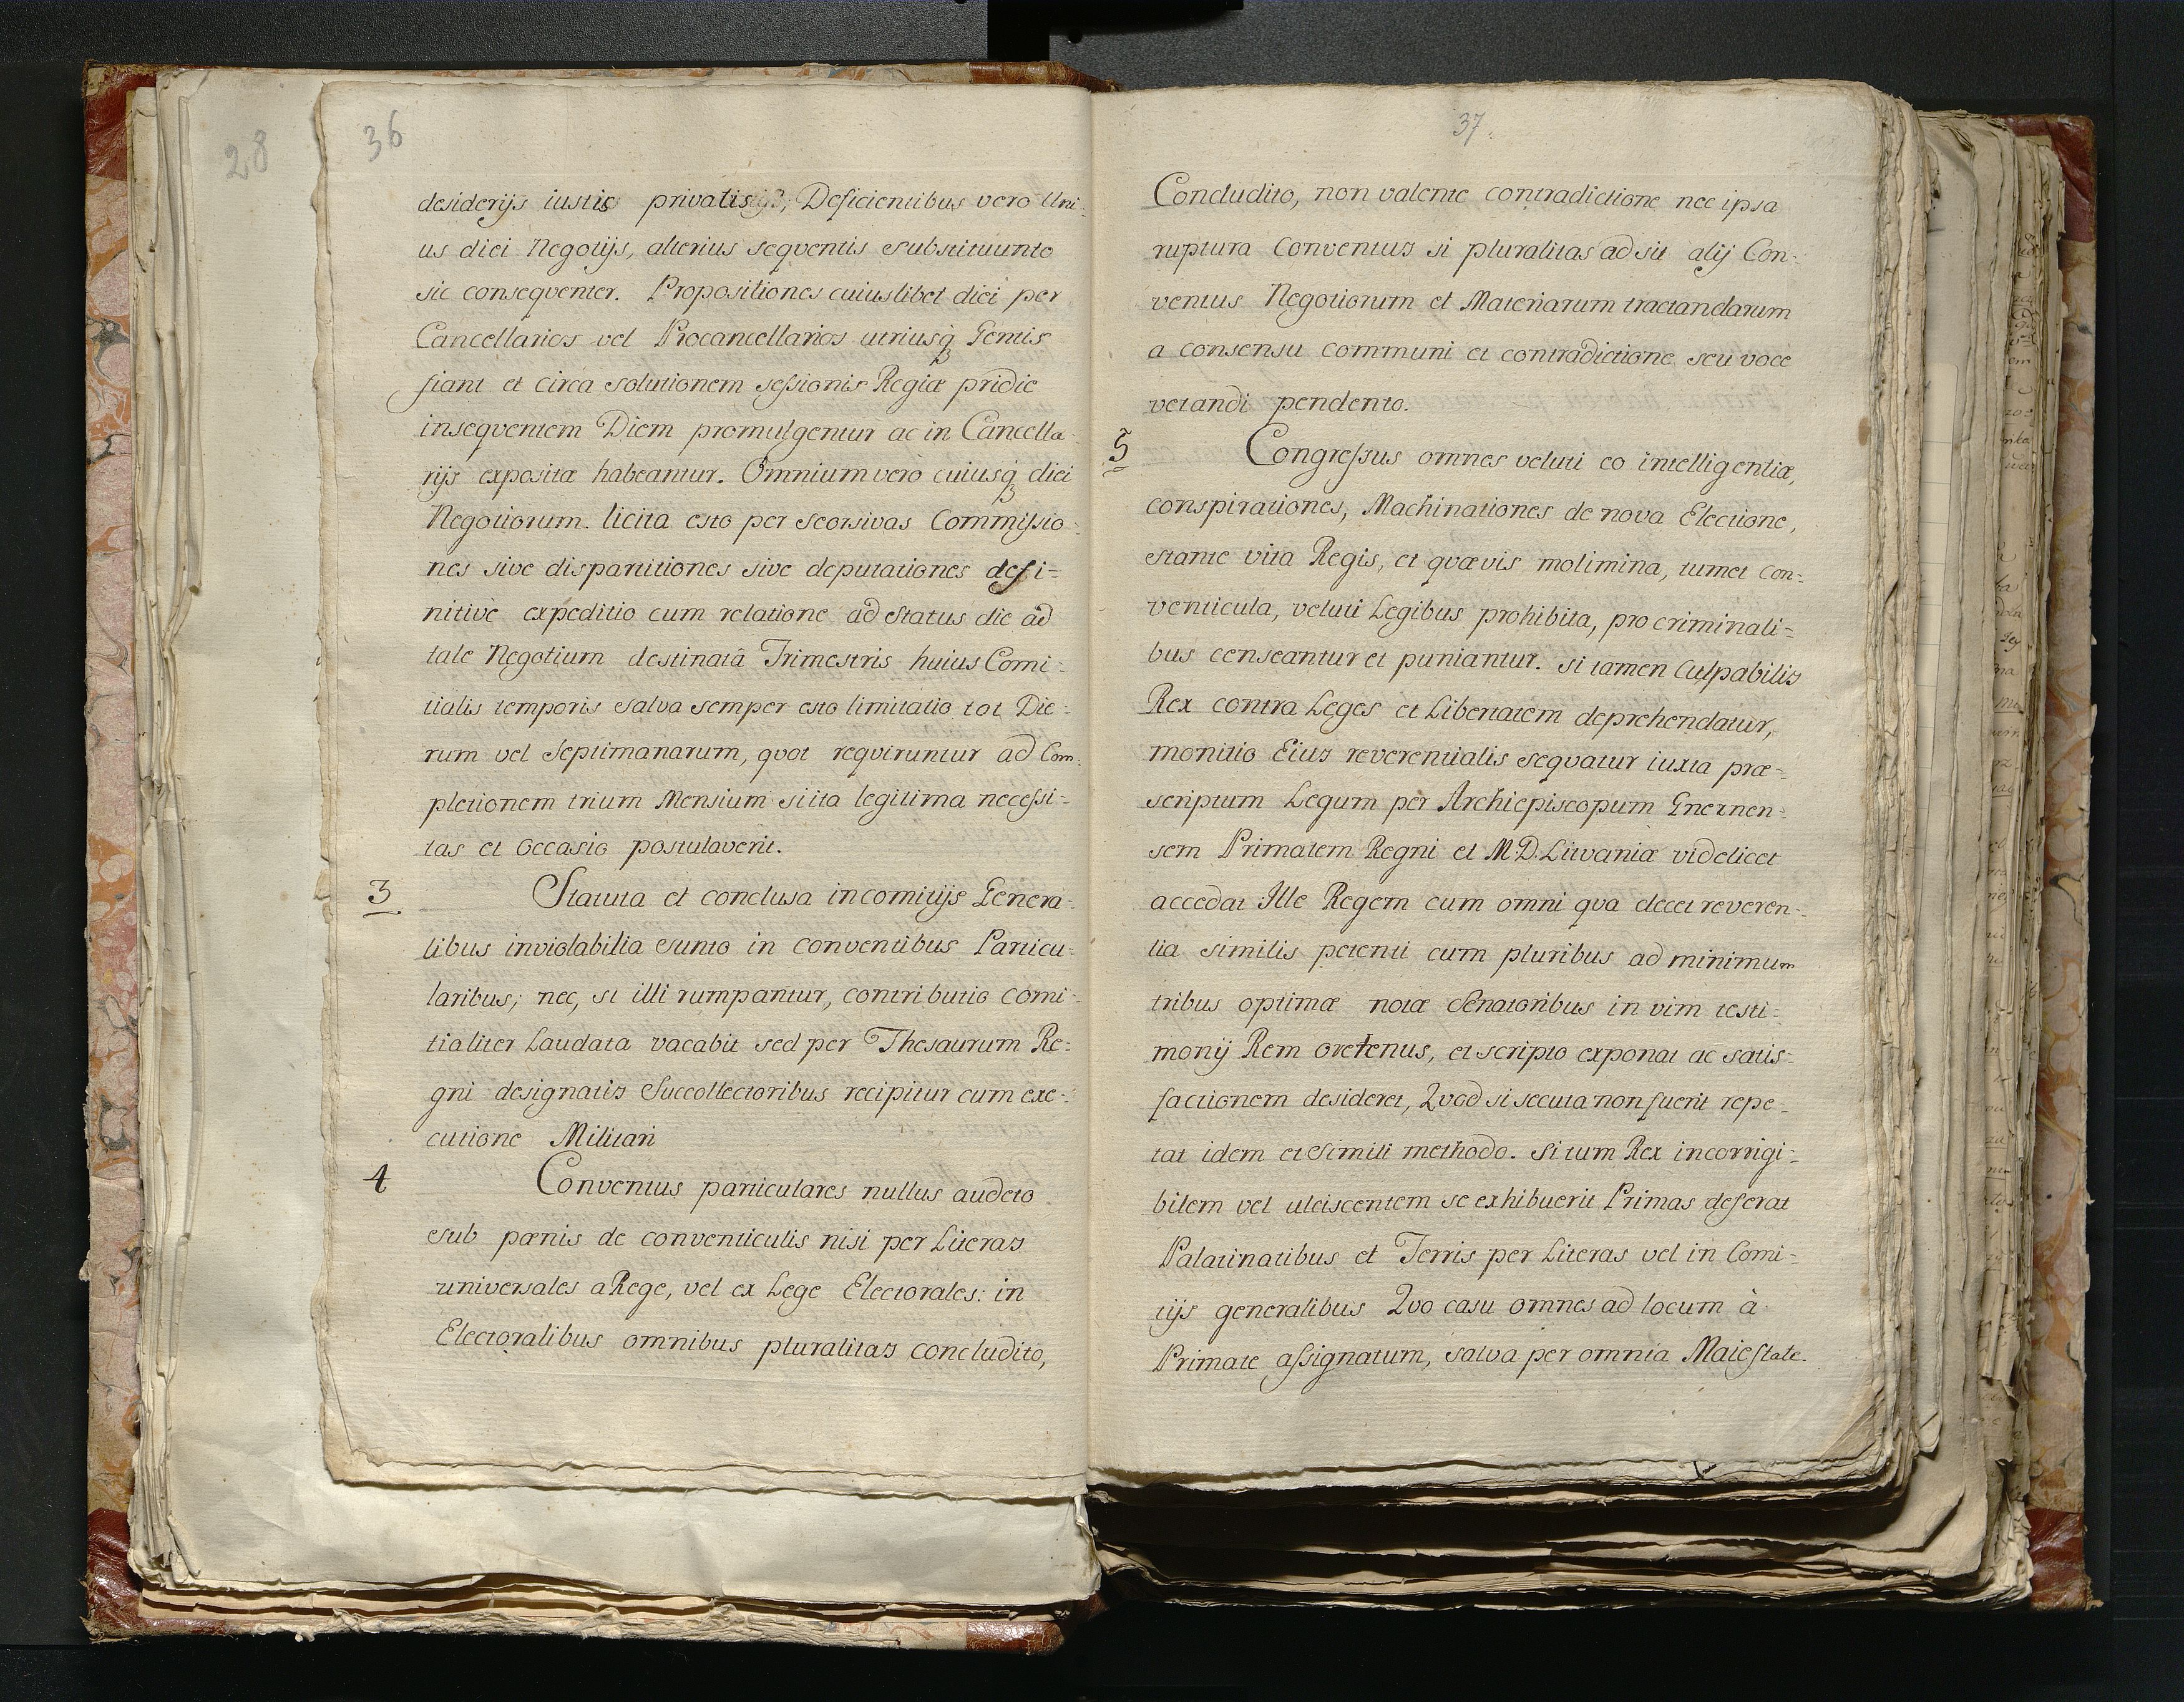 28
36
desiderijs iustis privatis; Deficientibus vero Uni-
us diei Negotijs, alterius seqventis substituunto
sic conseqventer. Propositiones cuiuslibet diei per
Cancellarios vel Procancellarios utriusq̢ Gentis
fiant et circa solutionem sessionis Regiæ pridie
inseqventem Diem promulgentur ac in Cancella-
rijs expositæ habeantur. Omnium vero cuiusq̢ diei
Negotiorum licita esto per seorsivas Commissio-
nes sive dispartitiones sive deputationes defi-
nitive expeditio cum relatione ad Status die ad
tale Negotium destinatâ Trimestris huius Comi-
tialis temporis salva semper esto limitatio tot Die-
rum vel Septimanarum, qvot reqviruntur ad Com-
pletionem trium Mensium si ita legitima necessi-
tas et occasio postulaverit.
3 Statuta et conclusa in comitijs Genera-
libus inviolabilia sunto in conventibus Particu-
laribus; nec, si illi rumpantur, contributio comi-
tialiter Laudata vacabit sed per Thesaurum Re-
gni designatis Succollectoribus recipitur cum exe-
cutione Militari
4 Conventus particulares nullus audeto
sub pænis de conventiculis nisi per Literas
universales a Rege, vel ex Lege Electorales: in
Electoralibus omnibus pluralitas concludito,
37.
Concludito, non valente contradictione nec ipsa
ruptura Conventus si pluralitas adsit alij Con-
ventus Negotiorum et Materiarum tractandarum
a consensu communi et contradictione seu voce
vetandi pendento.
5 Congressus omnes veluti eo intelligentiæ,
conspirationes, Machinationes de nova Electione,
stante vita Regis, et qvævis molimina, tumet con-
venticula, veluti Legibus prohibita, pro criminali-
bus censeantur et puniantur. si tamen Culpabilis
Rex contra Leges et Libertatem deprehendatur,
monitio Eius reverentialis seqvatur iuxta præ-
scriptum Legum per Archiepiscopum Gneznen-
sem Primatem Regni et M.D. Litvaniæ videlicet
accedat Ille Regem cum omni qva decet reveren-
tia similis petenti cum pluribus ad minimum
tribus optimæ notæ Senatoribus in vim testi-
monij Rem oretenus, et scripto exponat ac satis-
factionem desideret, Qvod si secuta non fuerit repe-
tat idem et simili methodo. Si tum Rex incorrigi-
bilem vel ulciscentem se exhibuerit Primas deferat
Palatinatibus et Terris per Literas vel in Comi-
tijs generalibus Qvo casu omnes ad locum à
Primate assignatum, salva per omnia Maiestate.